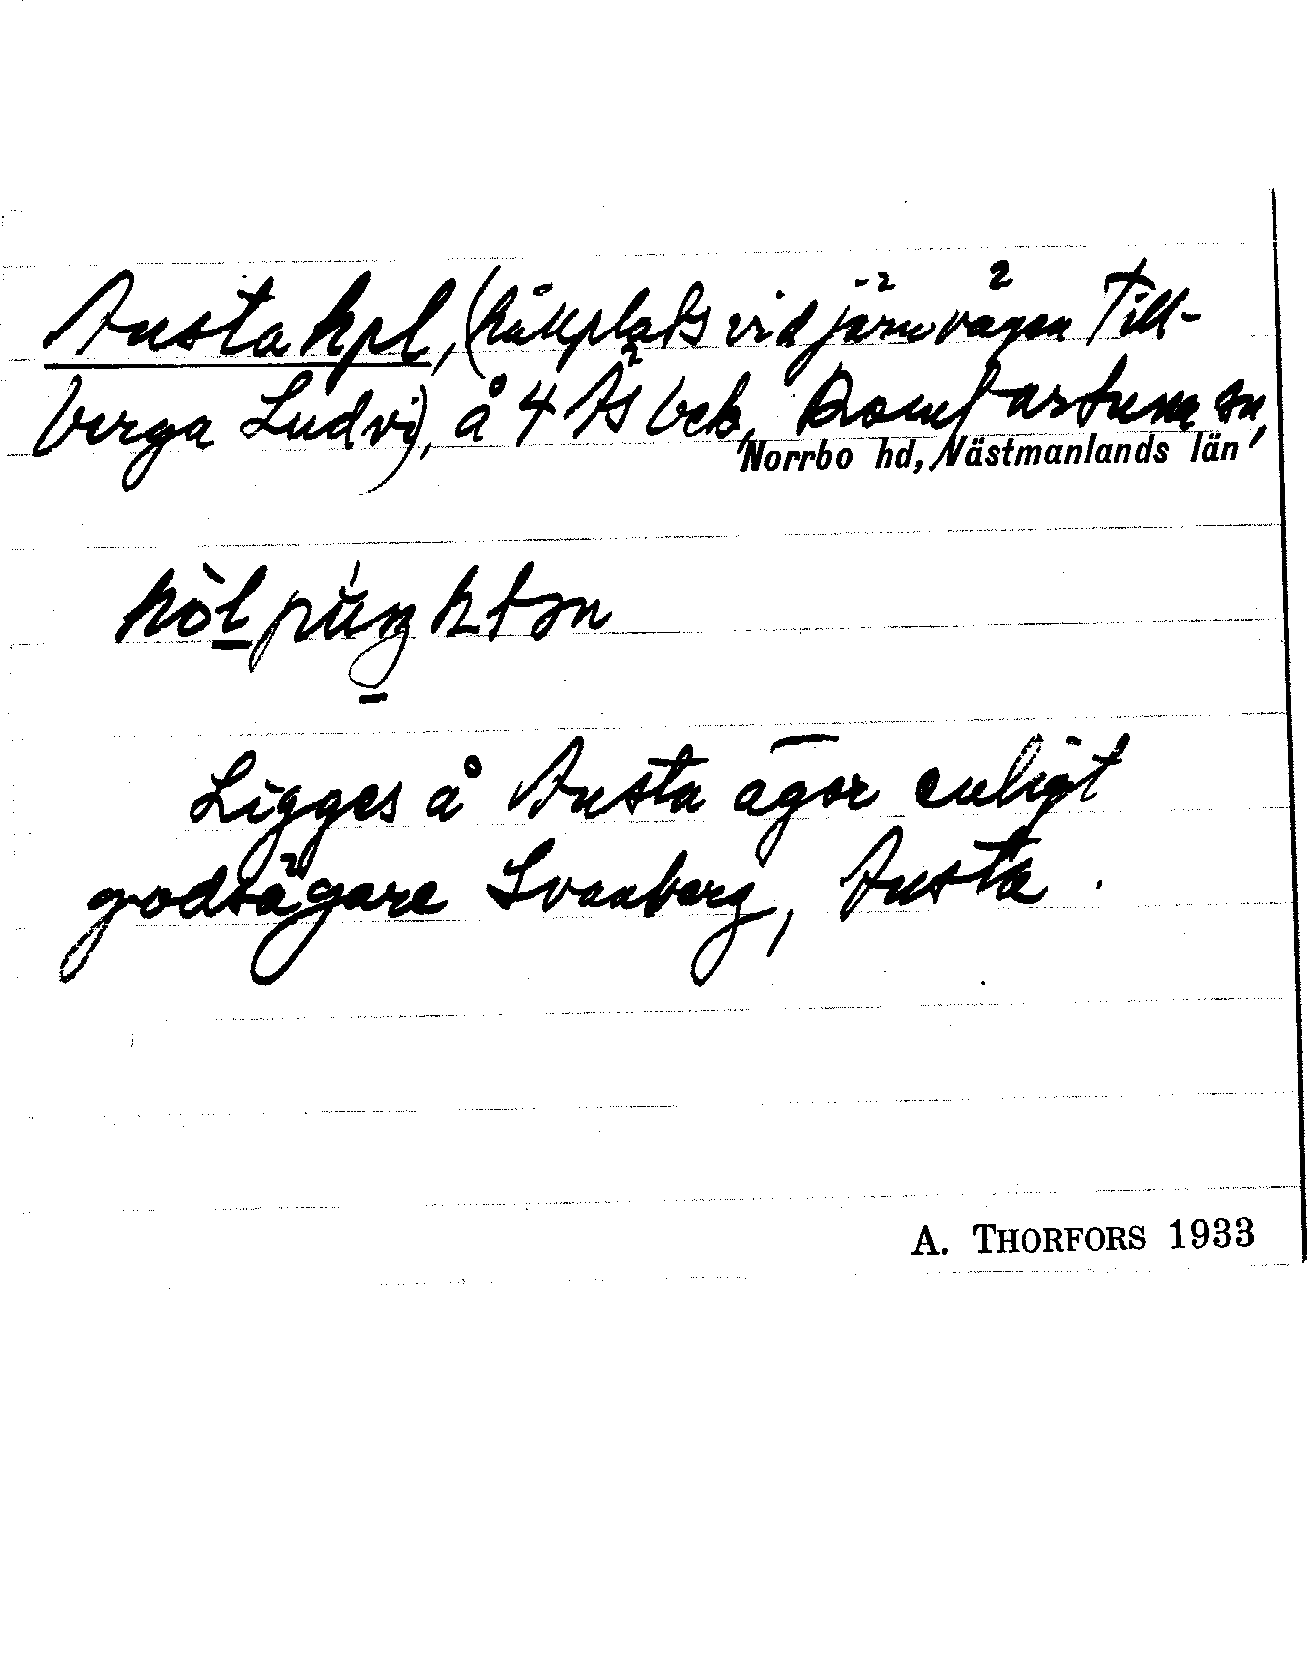 Austa hpl, (hållplats vid järnvägen Till-
berga Ludvi), å 4 Ås bek, Romfartuna sn,
Norrbo hd, Västmanlands län
Ligges å Austa ägor enligt
godsägare Svanberg, Austa.
A. THORFORS 1933